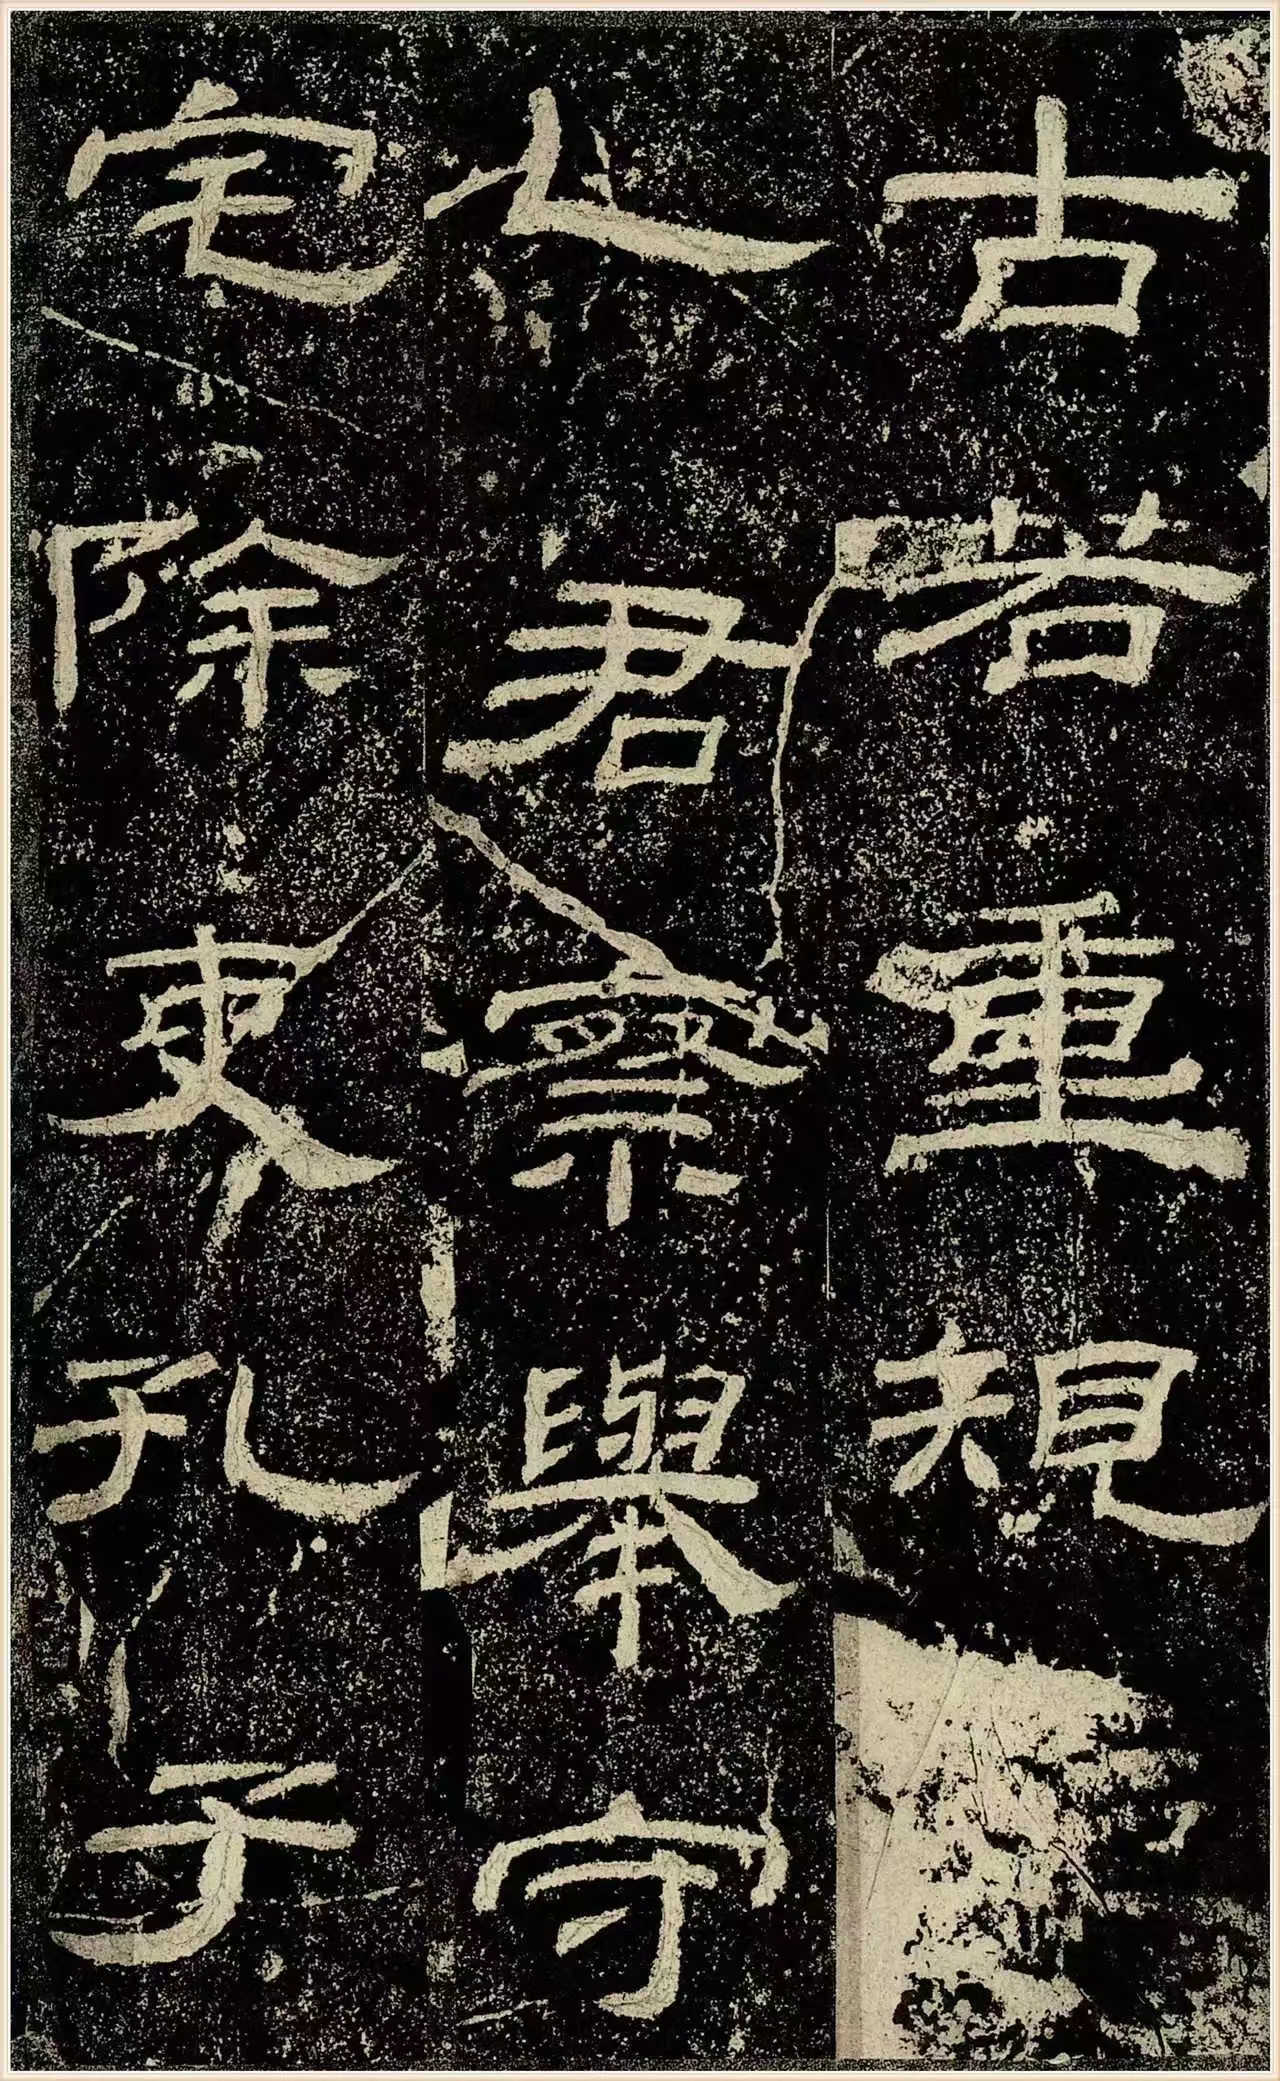 古若重規
人君察舉守
宅除吏孔子